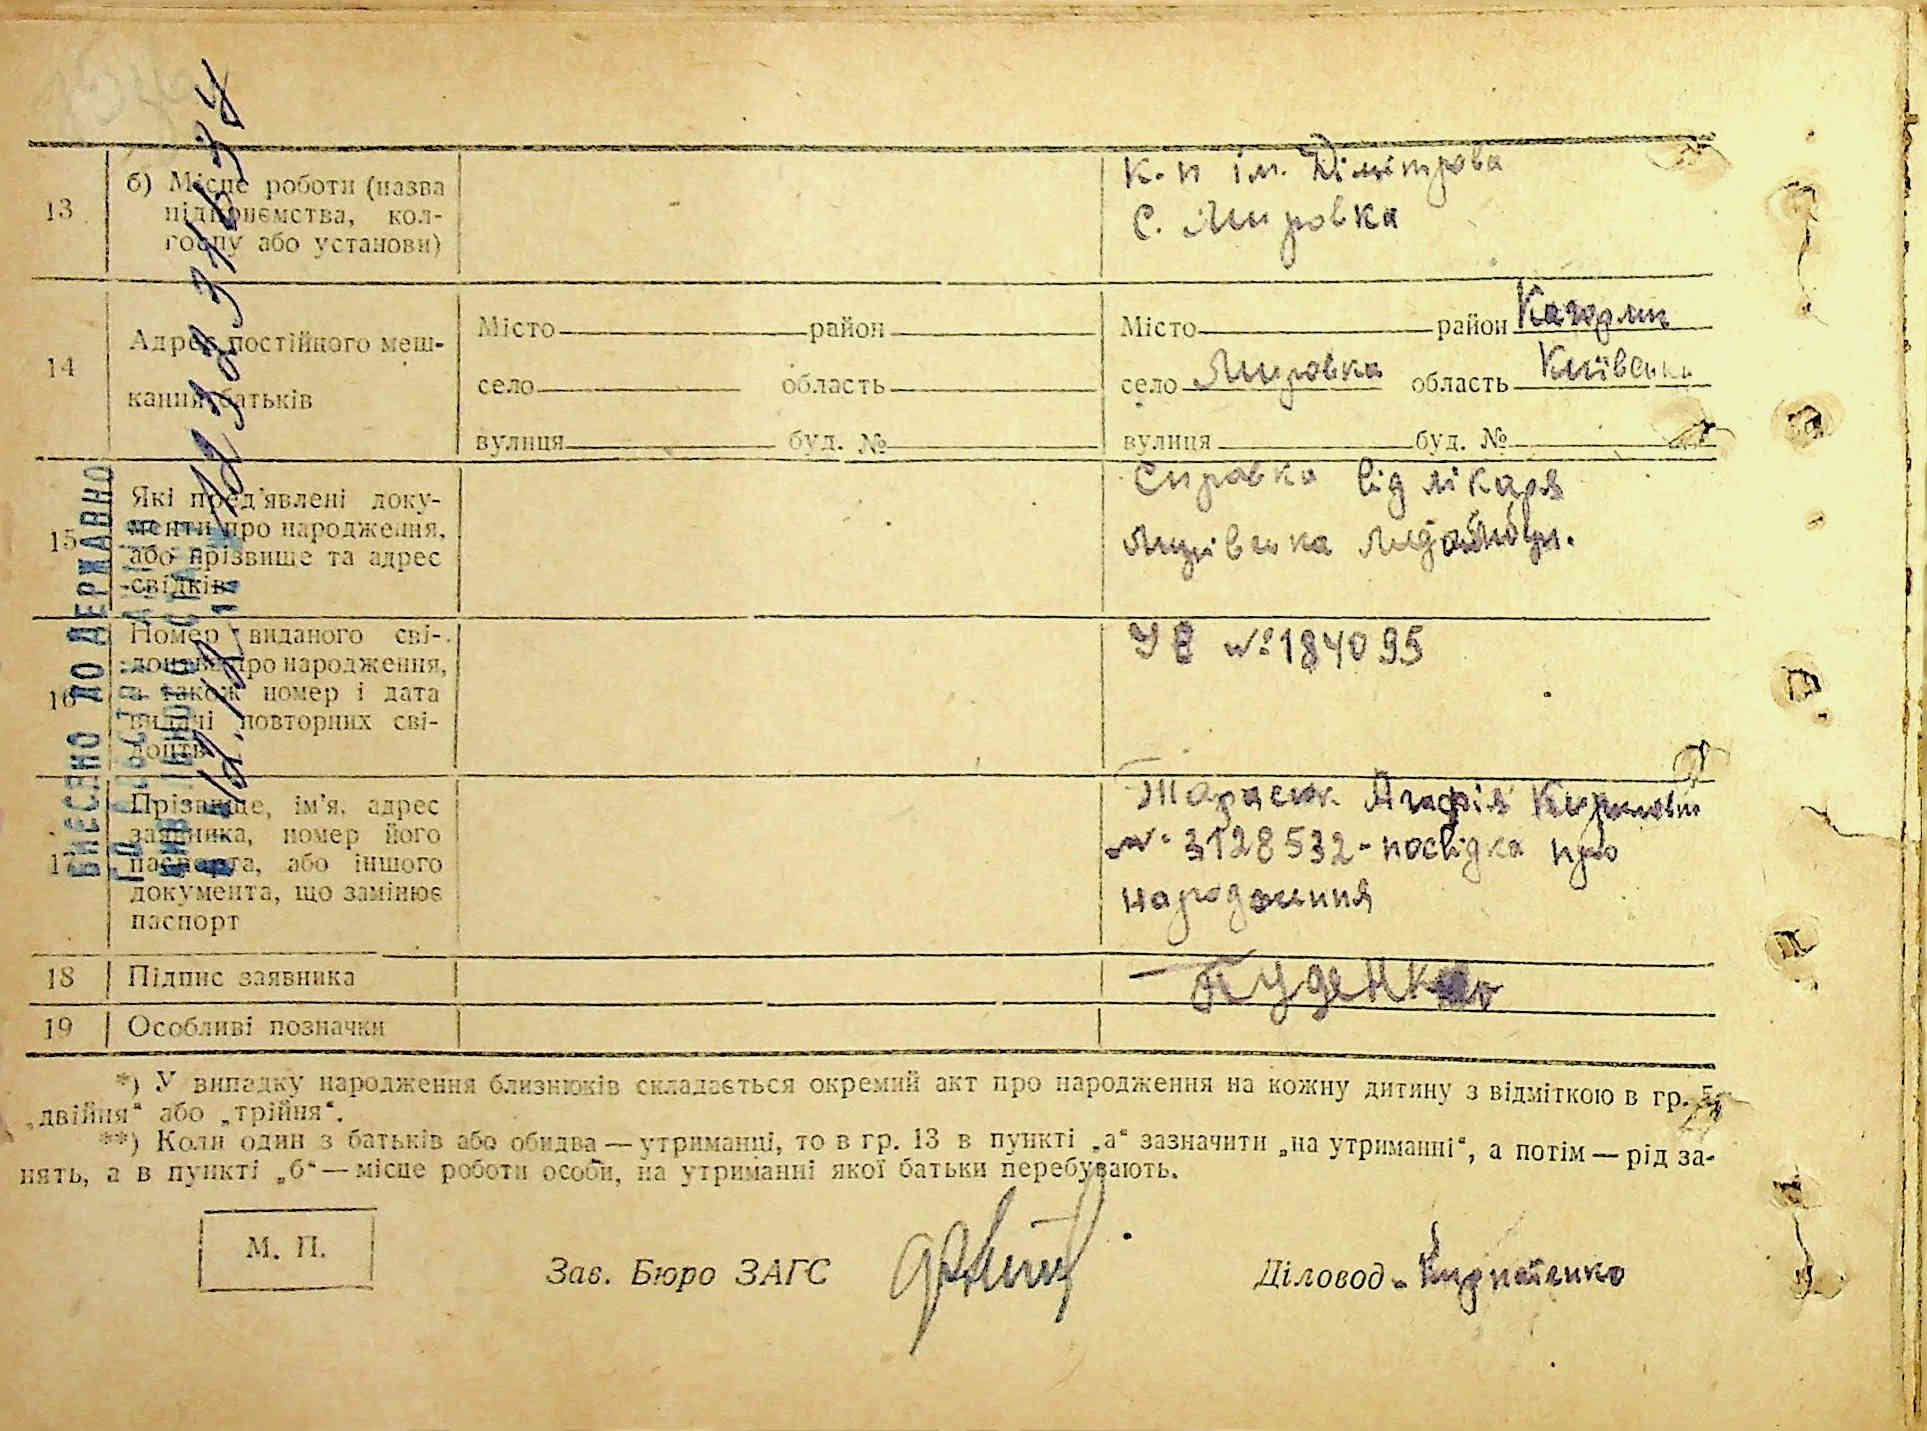 13
б) Місце роботи (назва
підприємства, кол-
госпу або установи)
к. п ім. Дімітрова
с. Мировка
14
Адрес постійного меш-
кання батьків
Місто район
село область
вулиця буд. №
Місто район Кагорлик
село Мировка область Київська
вулиця буд. №
15
Які пред'явлені доку-
менти про народження,
або прізвище та адрес
свідків
Справка від лікаря
16
Номер виданого сві-
доцтва про народження,
а також номер і дата
видачі повторних сві-
доцтв
№ 184095
17
Прізвище, ім'я, адрес
заявника, номер його
паспорта, або іншого
документа, що замінює
паспорт
Тарасюк Агафія
№ 3128532 - посвідка про
народження
18
Підпис заявника
19
Особливі позначки
ВНЕСЕНО ДО ДЕРЖАВНО
*) У випадку народження близнюків складається окремий акт про народження на кожну дитину з відміткою в гр. 5
„двійня“ або „трійня“.
**) Коли один з батьків або обидва — утриманці, то в гр. 13 в пункті „а“ зазначити „на утриманні“, а потім — рід за-
нять, а в пункті „б“ — місце роботи особи, на утриманні якої батьки перебувають.
М. П.
Зав. Бюро ЗАГС
Діловод